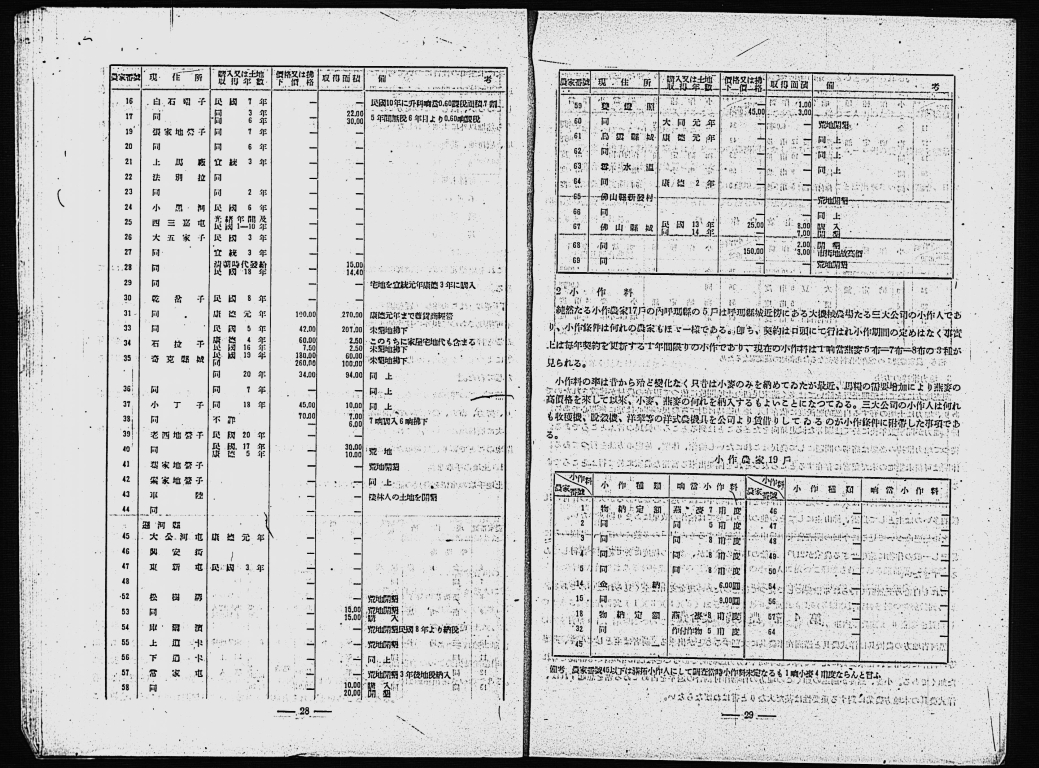 農家番號 現住所 購入又は土地取得年數 價格又は拂下價格 取得面積 備考
16 白石砬子 民國7年 — — 民國10年に升科
17 同 同 3年 — 22.00 5年間無稅6年目より0.60
同 6年 — 30.00
19 張家地營子 同 7年 — —
20 同 同 6年 — —
21 上馬廠 宣統3年 — —
22 法別拉 同 — —
23 同 同 2年 — —
24 小黑河 民國6年 — —
25 西三嘉屯 光緖年間及民國1—10年 — —
26 大五家子 民國3年 — —
27 同 宣統3年 — —
28 同 淸朝時代發給 — 15.00
民國18年 — 14.40
29 同 — — 宅地を宣統元年康德3年に購入
30 乾岔子 民國8年 — —
31 同 康德元年 190.00 270.50 康德元年まで
33 同 民國5年 42.00 207.00 未墾地拂下
34 石拉子 康德4年 60.00 2.50 このうちに家屋宅地代も含まる
民國16年 7.50 2.50 未墾地拂下
35 奇克縣城 民國19年 180.00 60.00 未墾地拂下
同 260.00 100.00
同 20年 34.00 94.00 同上
36 同 同 7年 — — 同上
37 小丁子 同 18年 45.00 10.00 同上
38 同 不詳 70.00 7.00 7晌購入6晌拂下
6.00
39 老西地營子 民國20年 — —
40 同 民國17年 — 30.00 荒地
康德5年 — 10.00
41 葛家地營子 — — 荒地開墾
42 張家地營子 — — 同上
43 車陸 — — 人の土地を開墾
44 同 — —
遜河縣
45 大公河屯 康德元年 — —
46 興安街 — —
47 東新屯 民國3年 — —
48 — —
52 松樹溝 — — 荒地開墾
53 同 — 15.00 荒地開墾
— 15.00 購入
54 — — 荒地開墾民國8年より納稅
55 上道卡 — — 荒地開墾
56 下道卡 — — 同上
57 常家屯 — — 荒地開墾3年後地稅納入
58 同 — 10.00 購入
— 20.00 開墾
— 28 —
農家番號 現住所 購入又は土地取得年數 價格又は拂下價格 取得面積 備考
59 雙燈照 — 1.00
45.00 3.00
60 同 大同元年 — — 荒地開墾
61 烏雲縣城 康德元年 — — 同上
62 同 — — 同上
63 雲水溫 — — 同上
64 同 康德2年 — —
65 佛山縣新發村 — — 荒地開墾
66 同 — — 同上
67 佛山縣城 民國13年 25.00 8.00 購入
同 14年 — 7.00 開墾
68 同 — 2.00 開墾
150.00 3.00 市街地故高價
69 同 — — 荒地開墾
2 小作料
純然たる小作農家17戶の內呼瑪縣の5戶は呼瑪縣城近傍にある大機械農場たる三大公司の小作人であ
り、小作條件は何れの農家もほゞ一樣である。卽ち、契約は口頭にて行はれ小作期間の定めはなく事實
上は每年契約を更新する1年間限りの小作であり、現在の小作料は1晌當燕麥5布—7布—8布の3種が
見られる。
小作料の率は昔から殆ど變化なく只昔は小麥のみを納めてゐたが最近、馬糧の需要增加により燕麥の
高價格を來して以來、小麥、燕麥の何れを納入するもよいことになつてゐる。三大公司の小作人は何れ
も收穫機、脫穀機、洋犂等の洋式農機具を公司より賃借りしてゐるのが小作條件に附帶した事項であ
る。
小作農家19戶
小作料 農家番號 小作種類 晌當小作料 小作料 農家番號 小作種類 晌當小作料
1 物納定額 燕麥7布度 46 — —
2 同 同 5布度 47 — —
3 同 同 8布度 48 — —
4 同 同 8布度 49 — —
5 同 同 8布度 50 — —
14 金納 6.00圓 54 — —
15 同 9.00圓 56 — —
18 物納定額 燕麥8布度 57 — —
32 同 作付作物5布度 64 — —
45 — —
備考、農家番號45以下は縣所小作人にして調査當時小作料未定なるも1晌小麥4布度ならんと言ふ
— 29 —